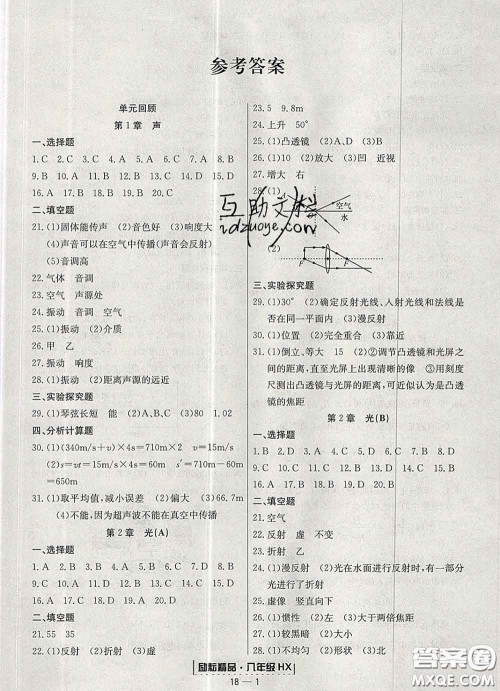 参考答案
单元回顾
第1章 声
一、选择题
1. C 2. B 3. C 4. D 5. B 6. C 7. B 8. B
9. A 10. D 11. D 12. D 13. B 14. A 15. D
16. A 17. D 18. B 19. B 20. A
二、填空题
21. (1)固体能传声 (2)音色好 (3)响度大
(4)声音可以在空气中传播(声音会反射)
(5)音调高
22. 气体 音调
23. 空气 声源处
24. 振动 音调 空气
25. (1)振动 (2)介质
26. 甲 乙
27. 振动 响度
28. (1)振动 (2)距离声源的远近
三、实验探究题
29. (1)琴弦长短 能 (2)0.1 1.02
四、分析计算题
30. (1)(340m/s+v)×4s=710m×2 v=15m/s
(2)s=vt=15m/s×4s=60m s′=710m-60m
=650m
31. (1)取平均值,减小误差 (2)偏大 (3)66.7m
(4)不能,因为超声波不能在真空中传播
第2章 光(A)
一、选择题
1. A 2. D 3. C 4. D 5. B 6. A 7. A 8. D
9. A 10. A 11. B 12. C 13. B 14. A 15. C
16. A 17. D 18. C 19. C 20. C
二、填空题
21. 55 35
22. (1)反射 (2)折射
23. 5 9.8m
24. 上升 50°
25. (1)凸透镜 (2)A、D (3)B
26. (1)10 (2)放大 (3)凹 近视
27. 增大 右
28. (1)
空气
水
(2)
F
F
三、实验探究题
29. (1)30° (2)确定反射光线、入射光线和法线是
否在同一平面内 (3)漫反射
30. (1)位置 (2)完全重合 (3)靠近
31. (1)倒立、等大 15 (2)②调节凸透镜和光屏之
间的距离,直到光屏上出现清晰的像 ③用刻度
尺测出凸透镜与光屏的距离,可近似认为是凸透
镜的焦距
第2章 光(B)
一、选择题
1. B 2. D 3. C 4. D 5. B 6. A 7. A 8. D
9. C 10. A 11. C 12. D 13. A 14. C 15. B
16. D 17. C 18. D 19. B 20. A
二、填空题
21. 空气
22. 反射 虚 不变
23. 折射 乙
24. (1)漫反射 (2)光在水面进行反射时,有一部分
光进行了折射
25. 虚像 看近 剪刀
26. (1)倒立 (2)光 (3)大于两倍焦距
27. (1)较黑暗 (2)小
28. (1)不均匀 (2)形状 (3)B
互助文库
hdzuoye.com
励耘精品·八年级HX
18 — 1
答案圈
MXQE.COM